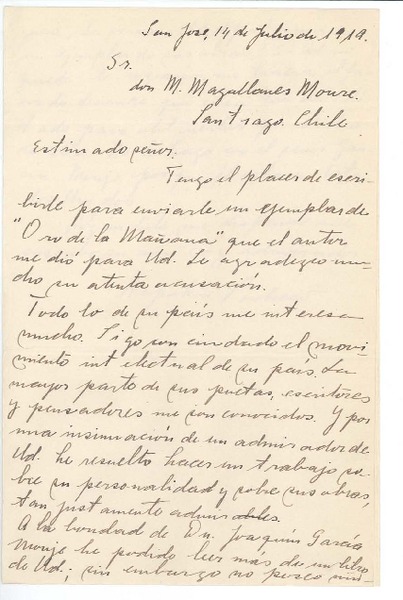 San José, 14 de Julio de 1919.
Sr.
don M. Magallanes Moure.
Santiago. Chile
Estimado señor.
Tengo el placer de escri-
birle para enviarle un ejemplar de
"Oro de la Mañana" que el autor
me dió para Ud. Le agradezco mu-
cho su atenta acusación.
Todo lo de su país me interesa
mucho. Sigo con cuidado el movi-
miento intelectual de su país. La
mayor parte de sus poetas, escritores
y pensadores me son conocidos. Y por
una insinuación de un admirador de
Ud. he resuelto hacer un trabajo so-
bre su personalidad y sobre sus obras,
tan justamente admirables.
A la bondad de Dn. Joaquín García
Monje he podido leer más de un libro
de Ud; sin embargo no poseo nin-